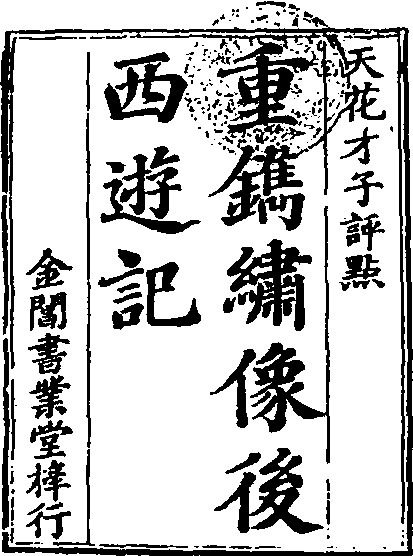 天花才子評點
重鐫繡像後
西遊記
金閶書業堂梓行